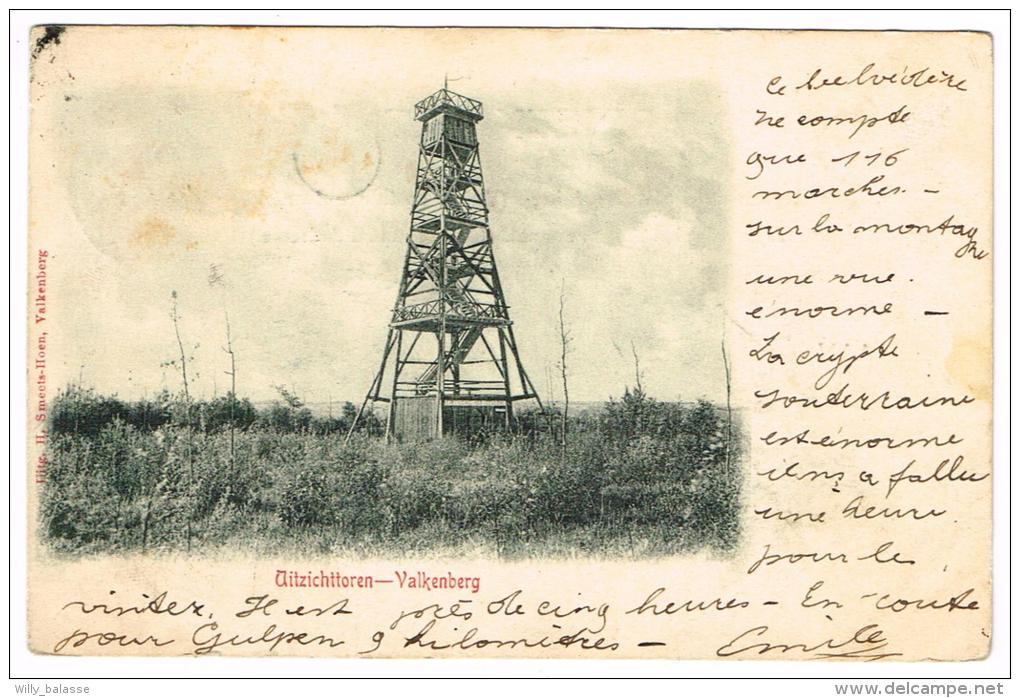 Ce belvédère
ne compte
que 116
marches. -
sur la montagne
une vue.
énorme -
La crypte
souterraine
est énorme
il a fallu
une heure
pour le
visiter. Il est près de cinq heures - En route
pour Gulpen 9 kilomètres - Emile
Uitg. H. Smeets-Hoen, Valkenberg
Uitzichttoren—Valkenberg
Willy_balasse
www.delcampe.net